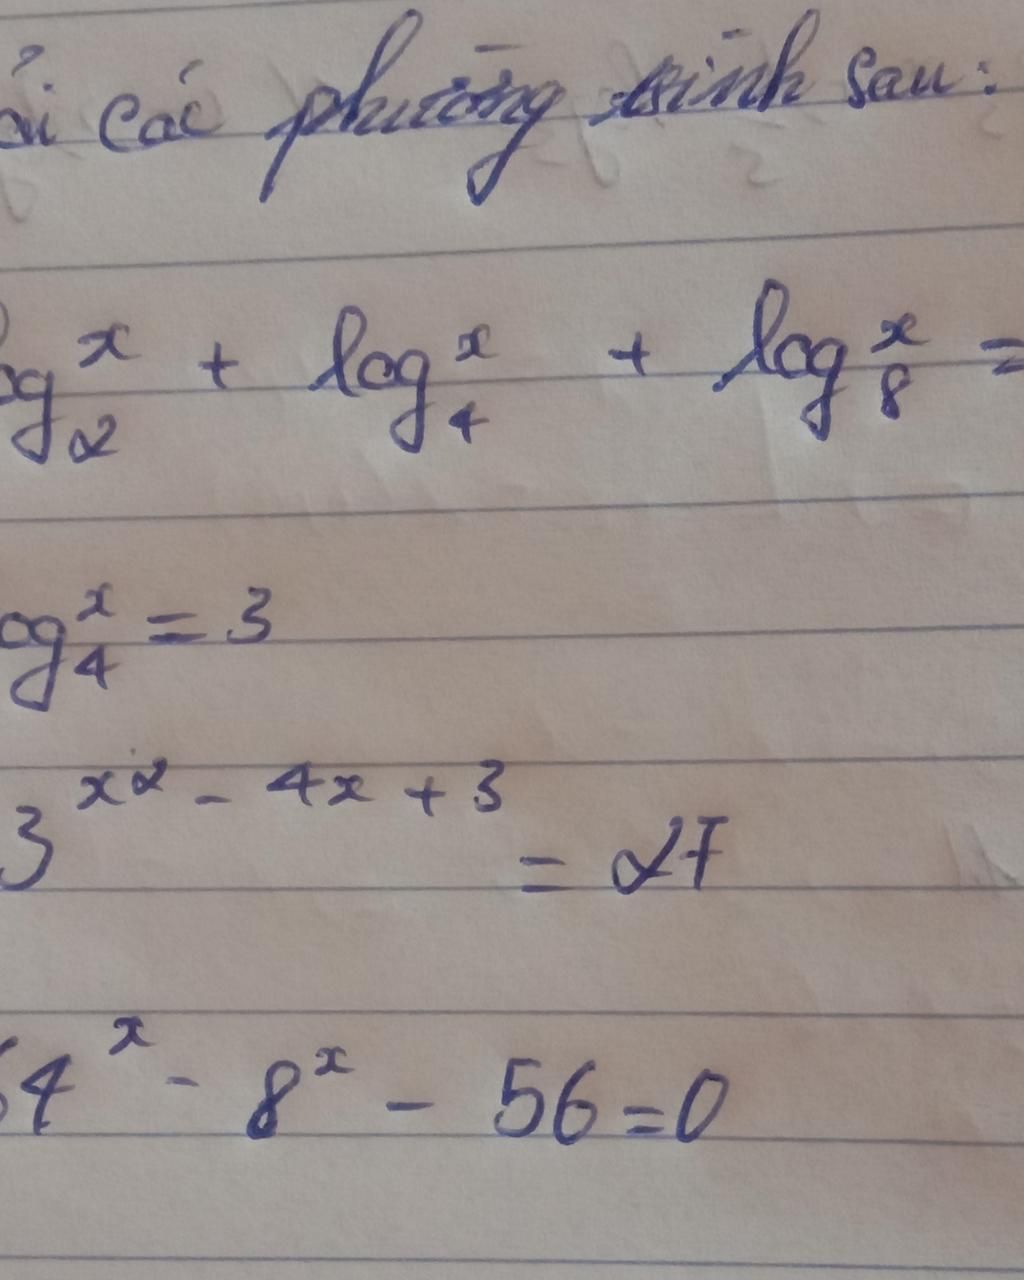 ải các phương trình sau:
og₂ˣ + log₄ˣ + log₈ˣ =
og₄ˣ = 3
3^(x2 - 4x + 3) = 27
4ˣ - 8ˣ - 56 = 0